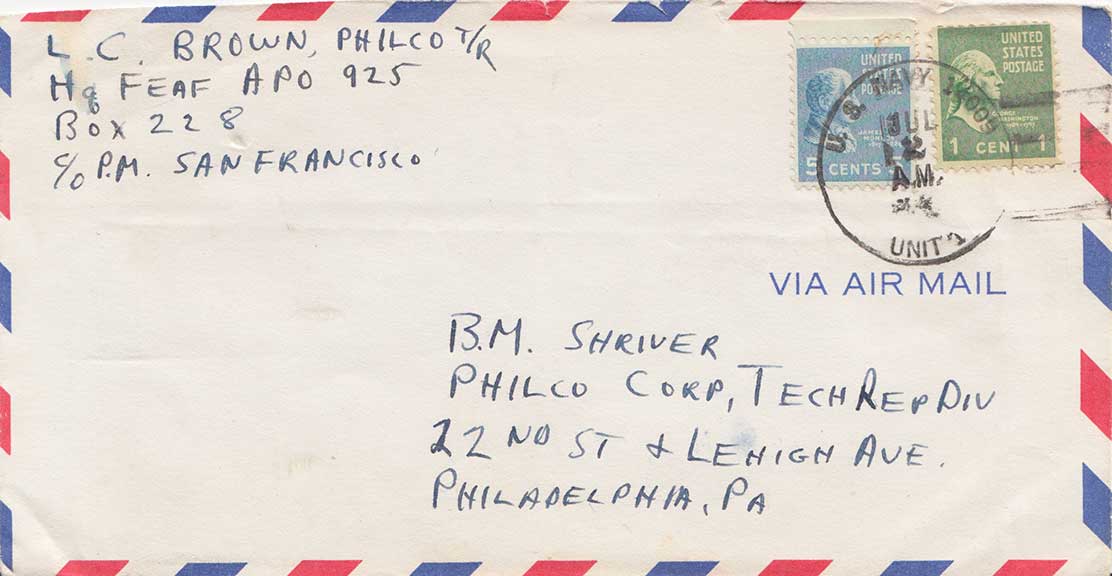 L. C. BROWN, PHILCO T/R
Hq FEAF APO 925
BOX 228
c/o P.M. SAN FRANCISCO
UNITED
STATES
POSTAGE
JAMES
MONROE
5 CENTS 5
UNITED
STATES
POSTAGE
GEORGE
WASHINGTON
1 CENT 1
U. S. NAVY
JUL
A.M.
UNIT
VIA AIR MAIL
B.M. SHRIVER
PHILCO CORP, TECH REP DIV
22 ND ST & LEHIGH AVE.
PHILADELPHIA, PA